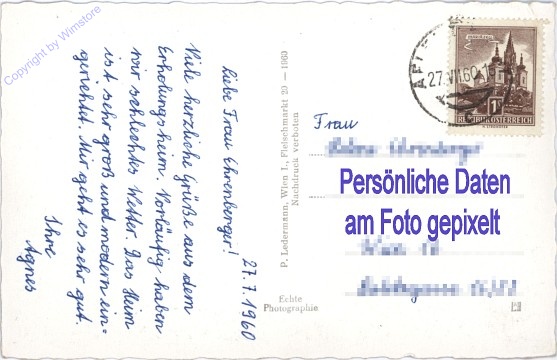 Copyright by Wimstore
27.7.1960
Liebe Frau Ehrenberger!
Viele herzliche Grüße aus dem
Erholungsheim. Vorläufig haben
wir schlechtes Wetter. Das Heim
ist sehr groß und modern ein=
gerichtet. Mir geht es sehr gut.
Ihre
Agnes
P. Ledermann, Wien I., Fleischmarkt 20 — 1960
Nachdruck verboten
Echte
Photographie
27.VII.60
REPUBLIK ÖSTERREICH
Frau
Persönliche Daten
am Foto gepixelt